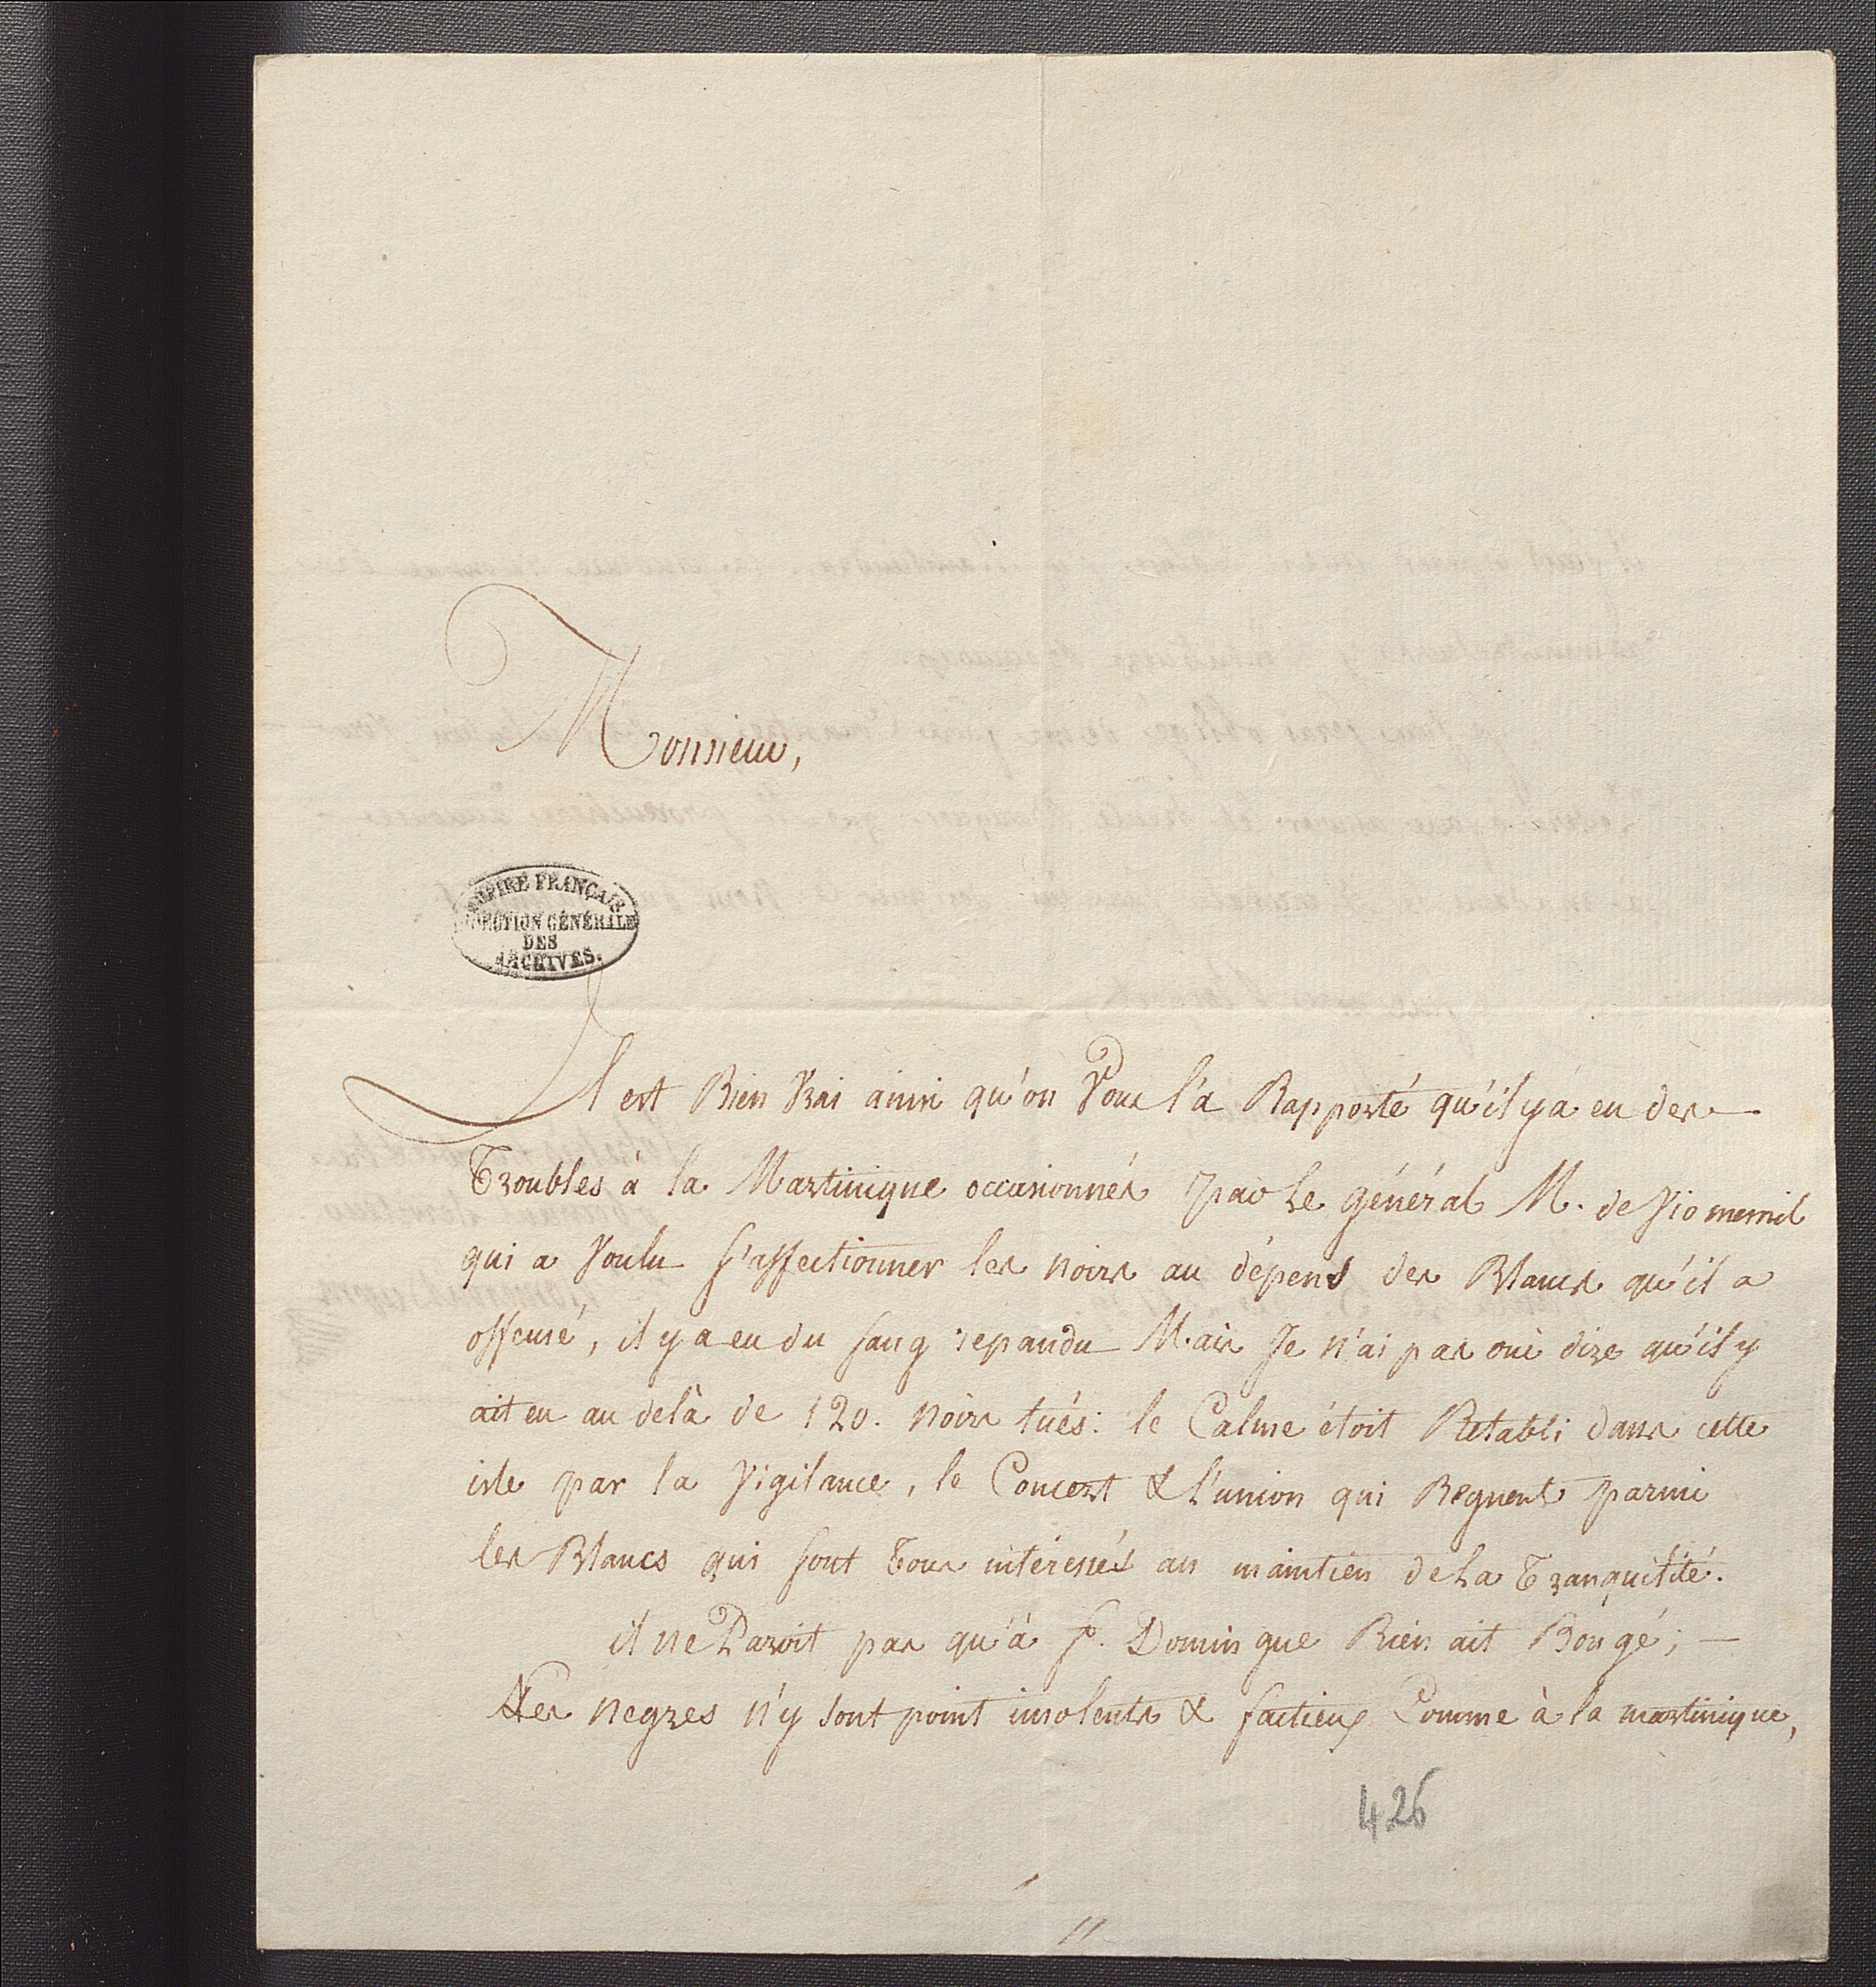 Monsieur,
EMPIRE FRANÇAIS
DIRECTION GÉNÉRALE
DES
ARCHIVES.
Il est Bien Vrai ainsi qu'on Vous l'a Rapporté qu'il y a eu des
Troubles à la Martinique occasionnés par Le général M. de Viomenil
qui a Voulu s'affectionner les noirs au dépens des Blancs qu'il a
offensé, il y a eu du sang repandu Mais Je n'ai pas oui dire qu'il y
ait eu au delà de 120. noirs tués: le Calme étoit Retabli dans cette
isle par la Vigilance, le Concert & L'union qui Regnent parmi
les Blancs qui sont Tous intéressés au maintien de La Tranquilité.
il ne Paroit pas qu'à St. Domingue Rien ait Bougé;
Les negres n'y sont point insolents & factieux Comme à la martinique,
426